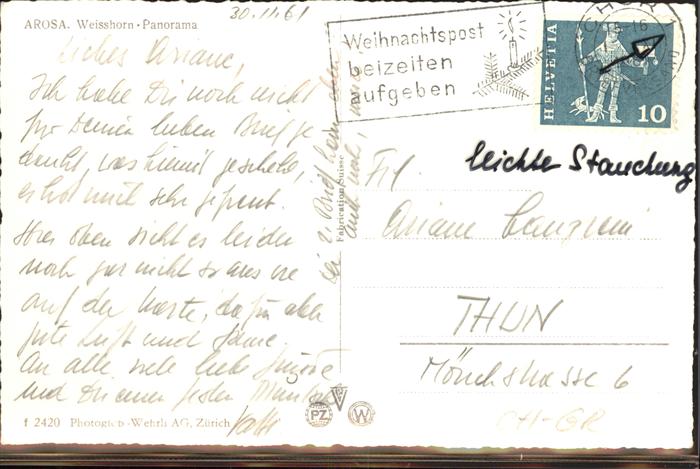 AROSA. Weisshorn - Panorama
30.11.61
Liebes Ariane,
Ich habe Dir noch nicht
für Deinen lieben Brief ge-
dankt, was hiemit geschehe,
es hat mich sehr gefreut.
Hier oben sieht es leider
noch gar nicht so aus wie
auf der Karte, dafür aber
gute Luft und Sonne.
An alle viele liebe Grüsse
und Dir einen festen
f 2420 Photogleb-Wehrli AG, Zürich
Fabrication Suisse
Weihnachtspost
beizeiten
aufgeben
CHUR
HELVETIA
10
leichte Stauchung
Frl.
Ariane
THUN
Mönchstrasse 6
CH-GR
PZ
W